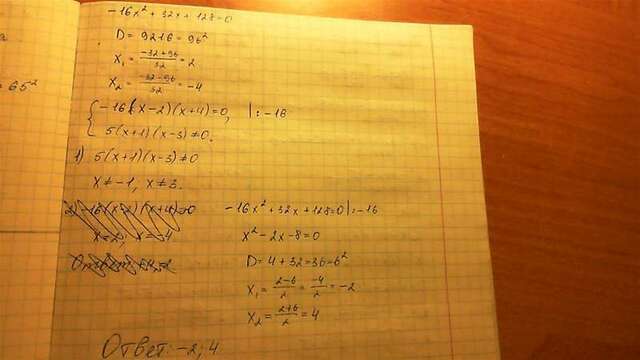 -16x² + 32x + 128 = 0
D = 9216 = 96²
x₁ = (-32+96)/32 = 2
x₂ = (-32-96)/32 = -4
= 65²
{ -16(x-2)(x+4)=0, |:-16
5(x+1)(x-3)≠0.
1) 5(x+1)(x-3)≠0
x≠-1, x≠3.
x=2, x=-4
-16x² + 32x + 128 = 0 |:-16
x² - 2x - 8 = 0
D = 4 + 32 = 36 = 6²
x₁ = (2-6)/2 = -4/2 = -2
x₂ = (2+6)/2 = 4
Ответ: -2; 4